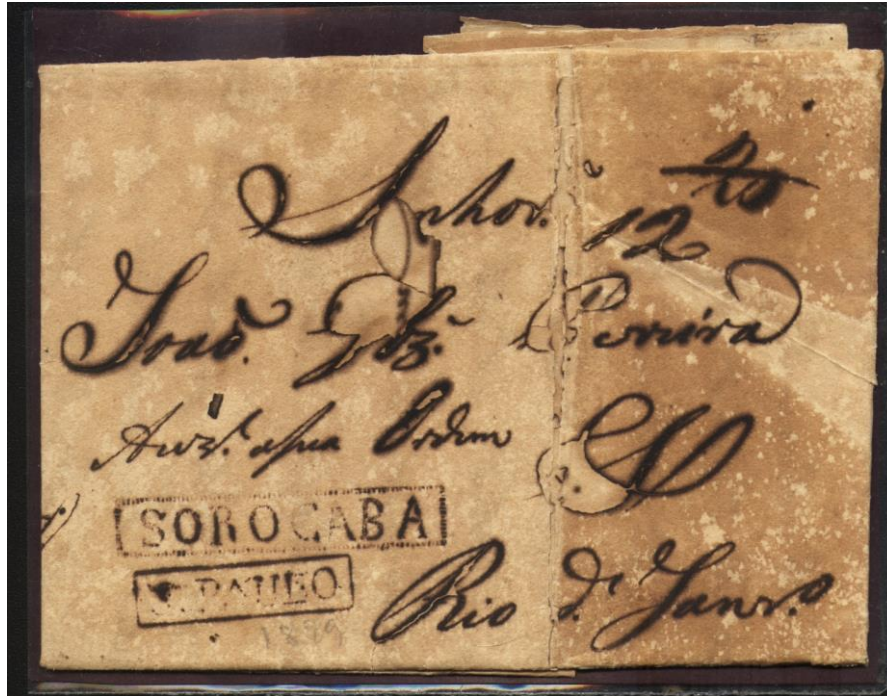 Senhor.
120
João Glz̃. Pereira
Auz.e a sua Ordem
SOROCABA
S. PAULO
Rio d.e Janr.o
1829